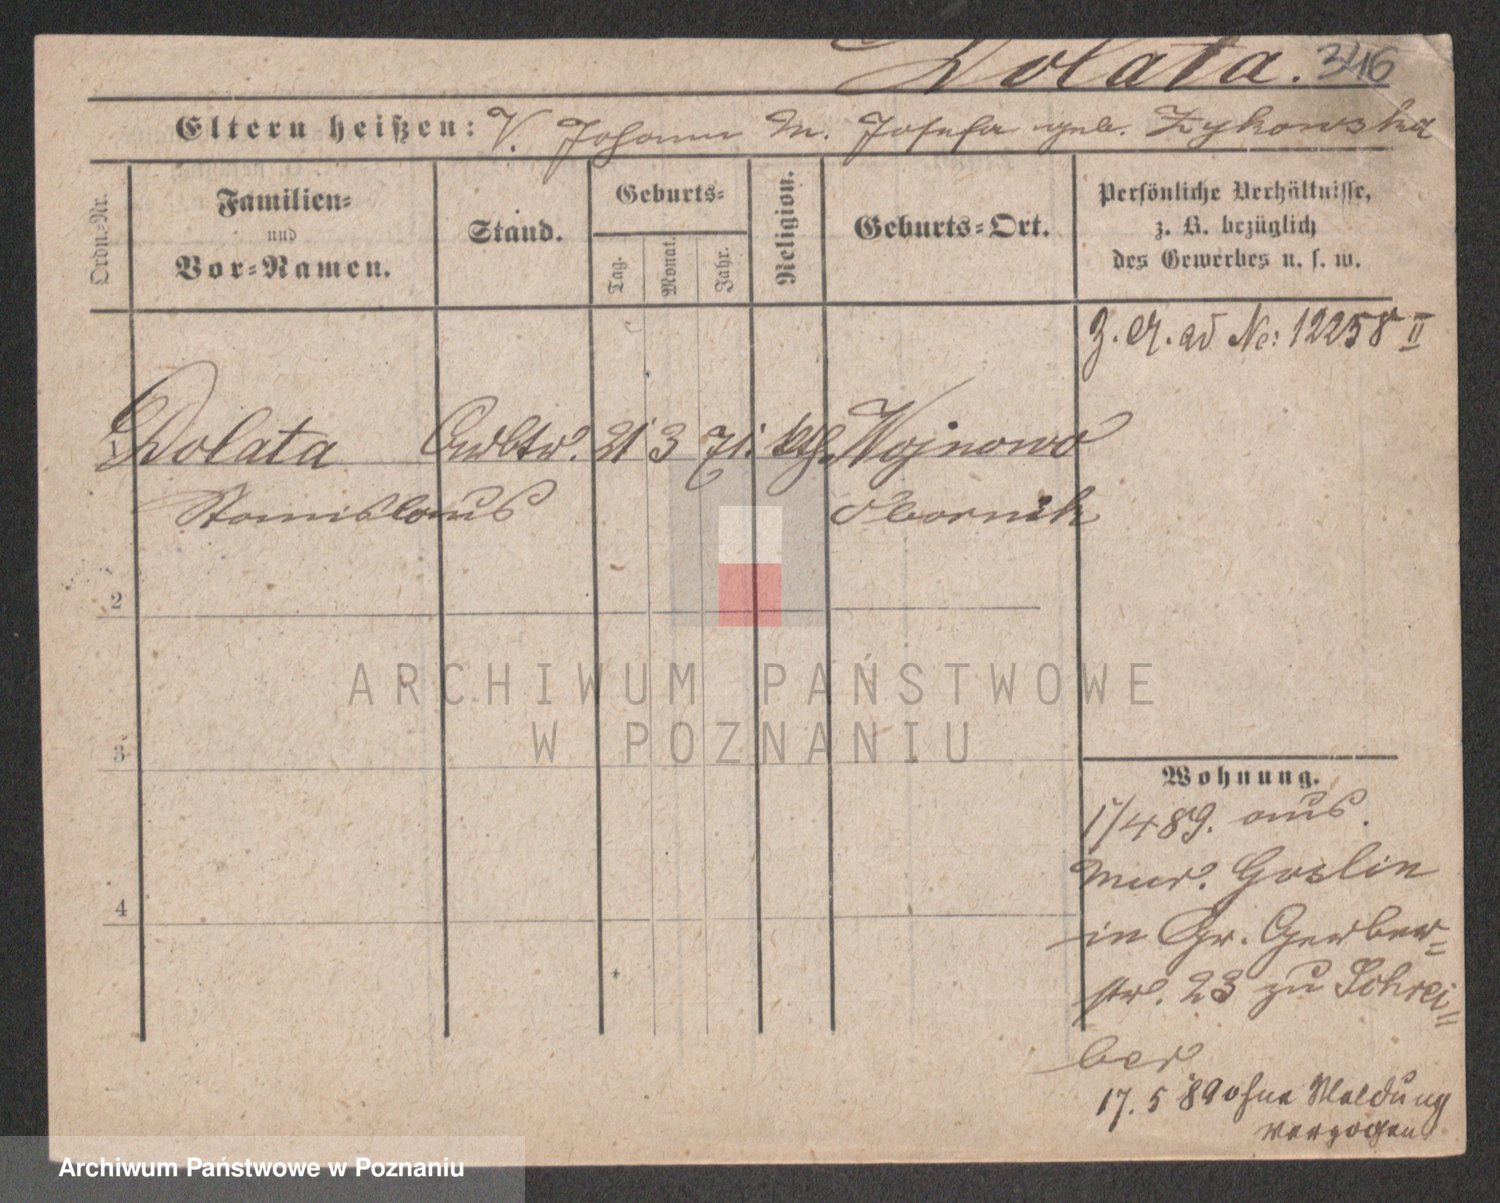 Dolata. 346
Eltern heißen: V. Johann M. Josefa geb. Zykowska
Ordn.-Nr.
Familien-
und
Vor-Namen.
Stand.
Geburts-
Tag.
Monat.
Jahr.
Religion.
Geburts-Ort.
Persönliche Verhältnisse,
z. B. bezüglich
des Gewerbes u. s. w.
Z. A. ad No: 12258 II
1 Dolata Arbtr. 21 3 71. kth. Wojnowo
Stanislaus Obornik
2
3
4
Wohnung.
1/4 89. aus
Mur. Goslin
in Gr. Gerber=
str. 23 zu Schrei=
ber
17. 5 89 ohne Meldung
verzogen
ARCHIWUM PAŃSTWOWE
W POZNANIU
Archiwum Państwowe w Poznaniu